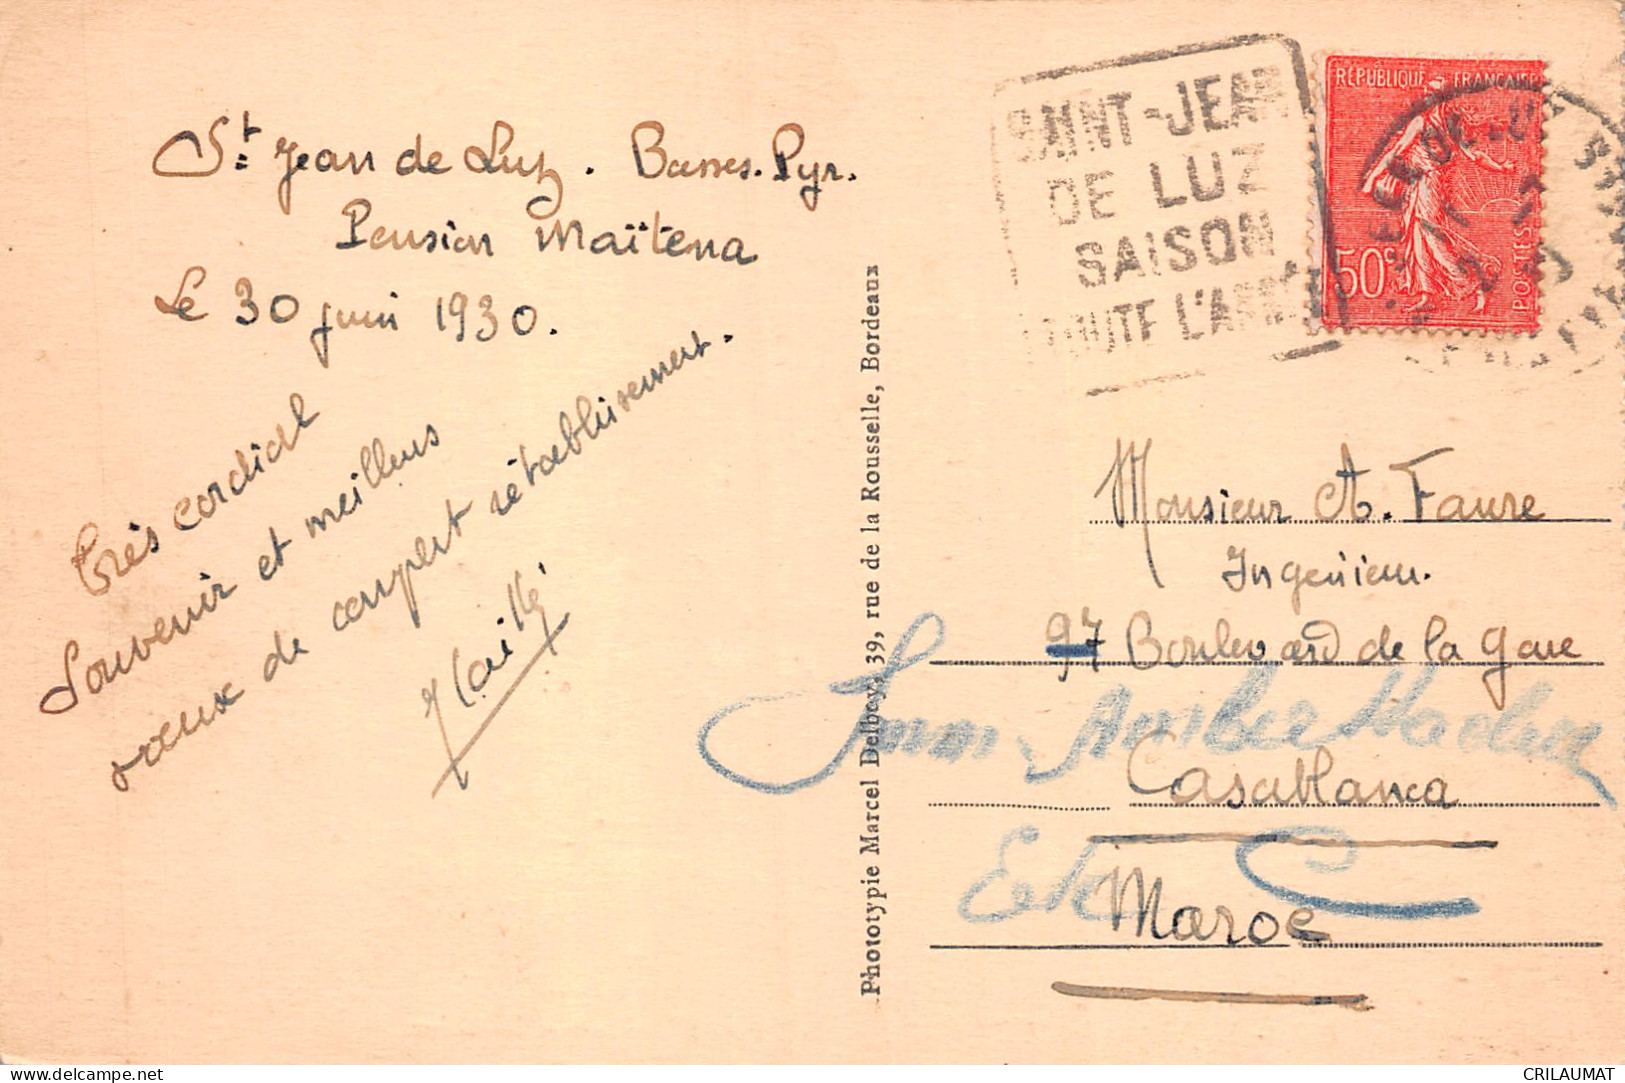 St Jean de Luz. Basses-Pyr.
Pension Maïtena
Le 30 juin 1930.
Très cordial
souvenir et meilleurs
vœux de complet rétablissement.
Phototypie Marcel Delboy, 39, rue de la Rousselle, Bordeaux
SAINT-JEAN
DE LUZ
SAISON
TOUTE L'ANNÉE
RÉPUBLIQUE FRANÇAISE
50c
POSTES
Monsieur A. Faure
Ingénieur.
97 Boulevard de la Gare
Casablanca
Maroc
CRILAUMAT